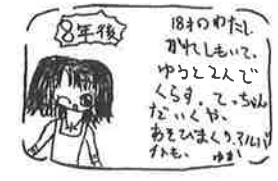 8年後
18才のわたし
かれしもいて、
ゆうと2人で
くらす。てっちゃん
だいくや、
あそびまくり、アルバ
イトも。 ゆき